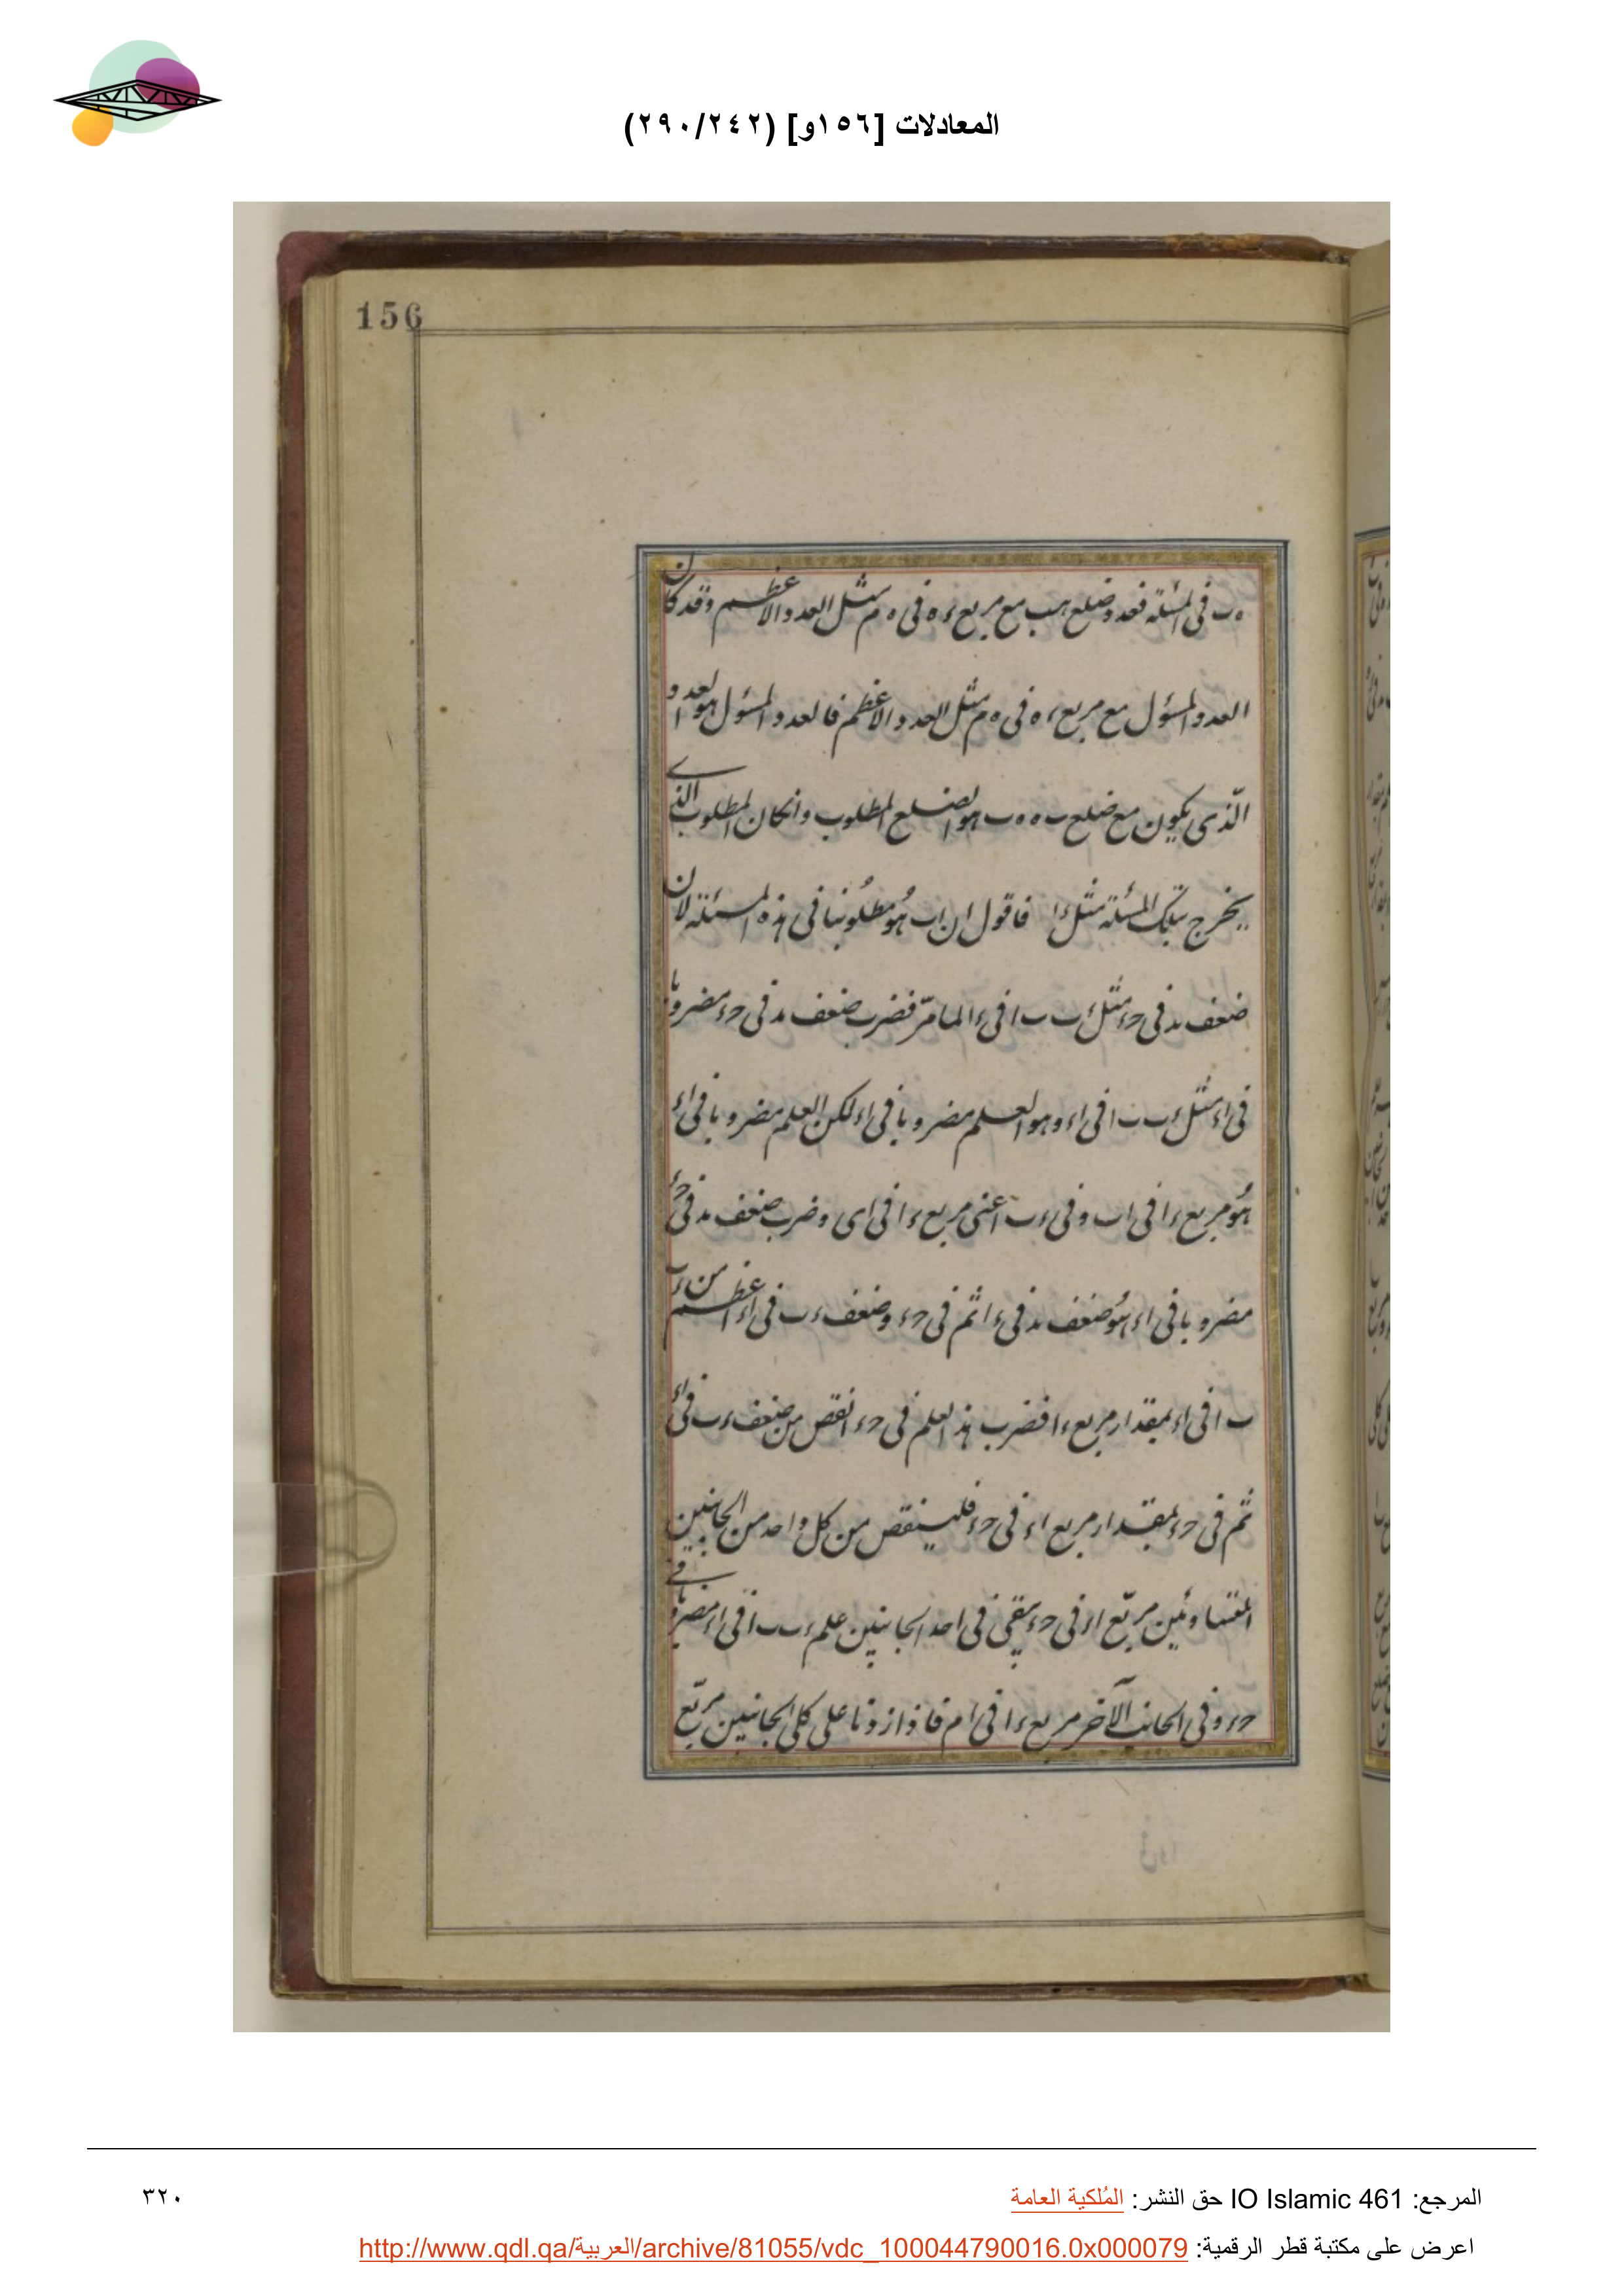 المعادلات [١٥٦و] (٢٩٠/٢٤٢)
156
ه ب فى المسئلة فعدد ضلع ه ب مع مربع ء ه فى ه م مثل العدد الاعظم وقد كان
العدد المسؤل مع مربع ء ه فى ه م مثل العدد الاعظم فالعدد المسؤل هو العدد
الّذى يكون مع ضلع ب ه ه ب هو الضلع المطلوب وانكان المطلوب الذى
يخرج بتلك المسئلة مثل ء ا فاقول ان ا ب هُو مطلُوبنا فى هذه المسئلة لان
ضعف ب د فى حء مثل ء ب ب ا فى ء ا لما مرّ فضرب ضعف ب د فى حء مضروبا
فى اء مثل ء ب ب ا فى اء وهو العلم مضروبا فى اء لكن العلم مضروبا فى اء
هُو مربع ء ا فى ا ب و فى ء ب اعنى مربع ء ا فى اى وضرب ضعف ب د فى حء
مضروبا فى اء هُو ضعف ب د فى ء ا ثم فى حء وضعف ء ب فى اء اعظم من ء ب
ب ا فى اء بمقدار مربع ء ا فضرب هذا العلم فى حء انقص من ضعف ء ب فى اء
ثم فى حء بمقدار مربع اء فى حء فلينقص من كل واحد من الجانبين
المتساوئين مربّع اء فى حء يبقى فى احد الجانبين علم ء ب ب ا فى اء مضروبا فى
حء و فى الجانب الآخر مربع ء ا فى ا م فاذا زدنا على كلى الجانبين مربّع
المرجع: IO Islamic 461 حق النشر: المُلكية العامة
٣٢٠
اعرض على مكتبة قطر الرقمية: http://www.qdl.qa/العربية/archive/81055/vdc_100044790016.0x000079